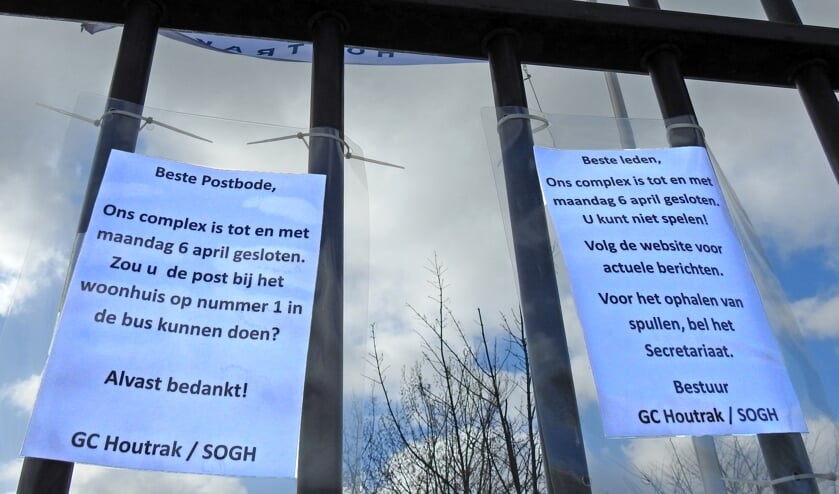 Beste Postbode,
Ons complex is tot en met
maandag 6 april gesloten.
Zou u de post bij het
woonhuis op nummer 1 in
de bus kunnen doen?
Alvast bedankt!
GC Houtrak / SOGH
Beste leden,
Ons complex is tot en met
maandag 6 april gesloten.
U kunt niet spelen!
Volg de website voor
actuele berichten.
Voor het ophalen van
spullen, bel het
Secretariaat.
Bestuur
GC Houtrak / SOGH